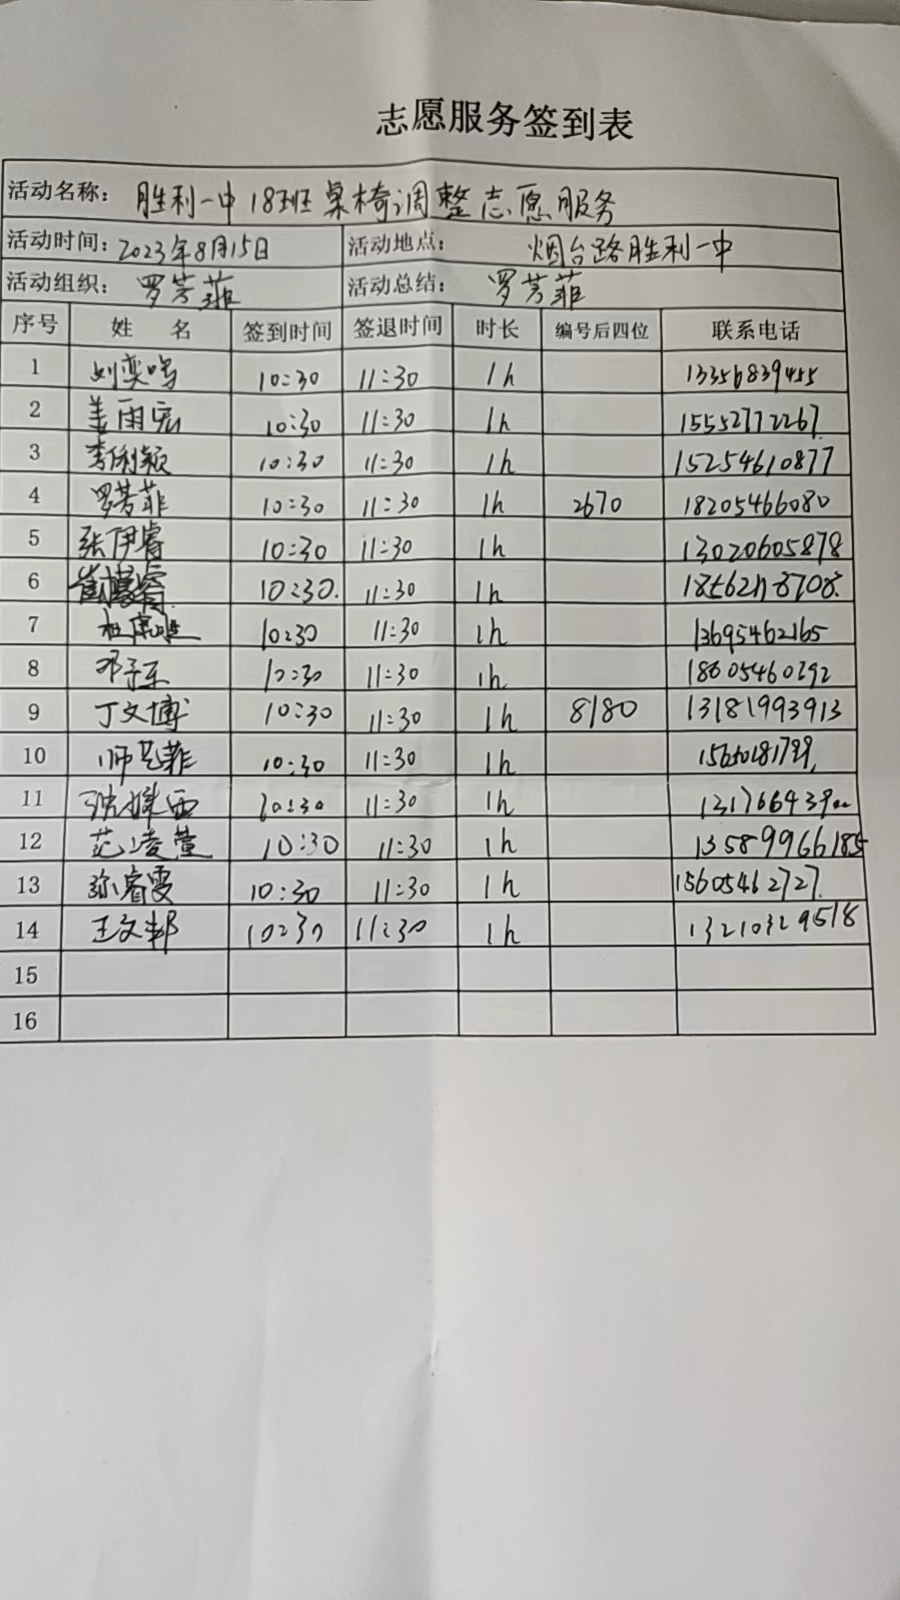 志愿服务签到表
活动名称: 胜利一中18班桌椅调整志愿服务
活动时间: 2023年8月15日 活动地点: 烟台路胜利一中
活动组织: 罗芳菲 活动总结: 罗芳菲
序号 姓 名 签到时间 签退时间 时长 编号后四位 联系电话
1 刘奕鸣 10:30 11:30 1h 13356839455
2 姜雨宏 10:30 11:30 1h 15552772267
3 李俐颖 10:30 11:30 1h 15254610877
4 罗芳菲 10:30 11:30 1h 2670 18205466080
5 张伊睿 10:30 11:30 1h 13020605878
6 10:30. 11:30 1h
7 10:30 11:30 1h 13695462165
8 邓子东 10:30 11:30 1h 18605460292
9 丁文博 10:30 11:30 1h 8180 13181993913
10 师艺菲 10:30 11:30 1h
11 10:30 11:30 1h
12 范凌萱 10:30 11:30 1h 13589966185
13 10:30 11:30 1h 15605462727.
14 王文邦 10:30 11:30 1h 13210329518
15
16